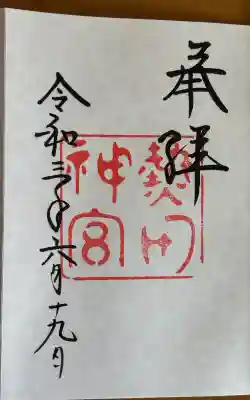 奉拝
熱田
神宮
令和三年六月十九日